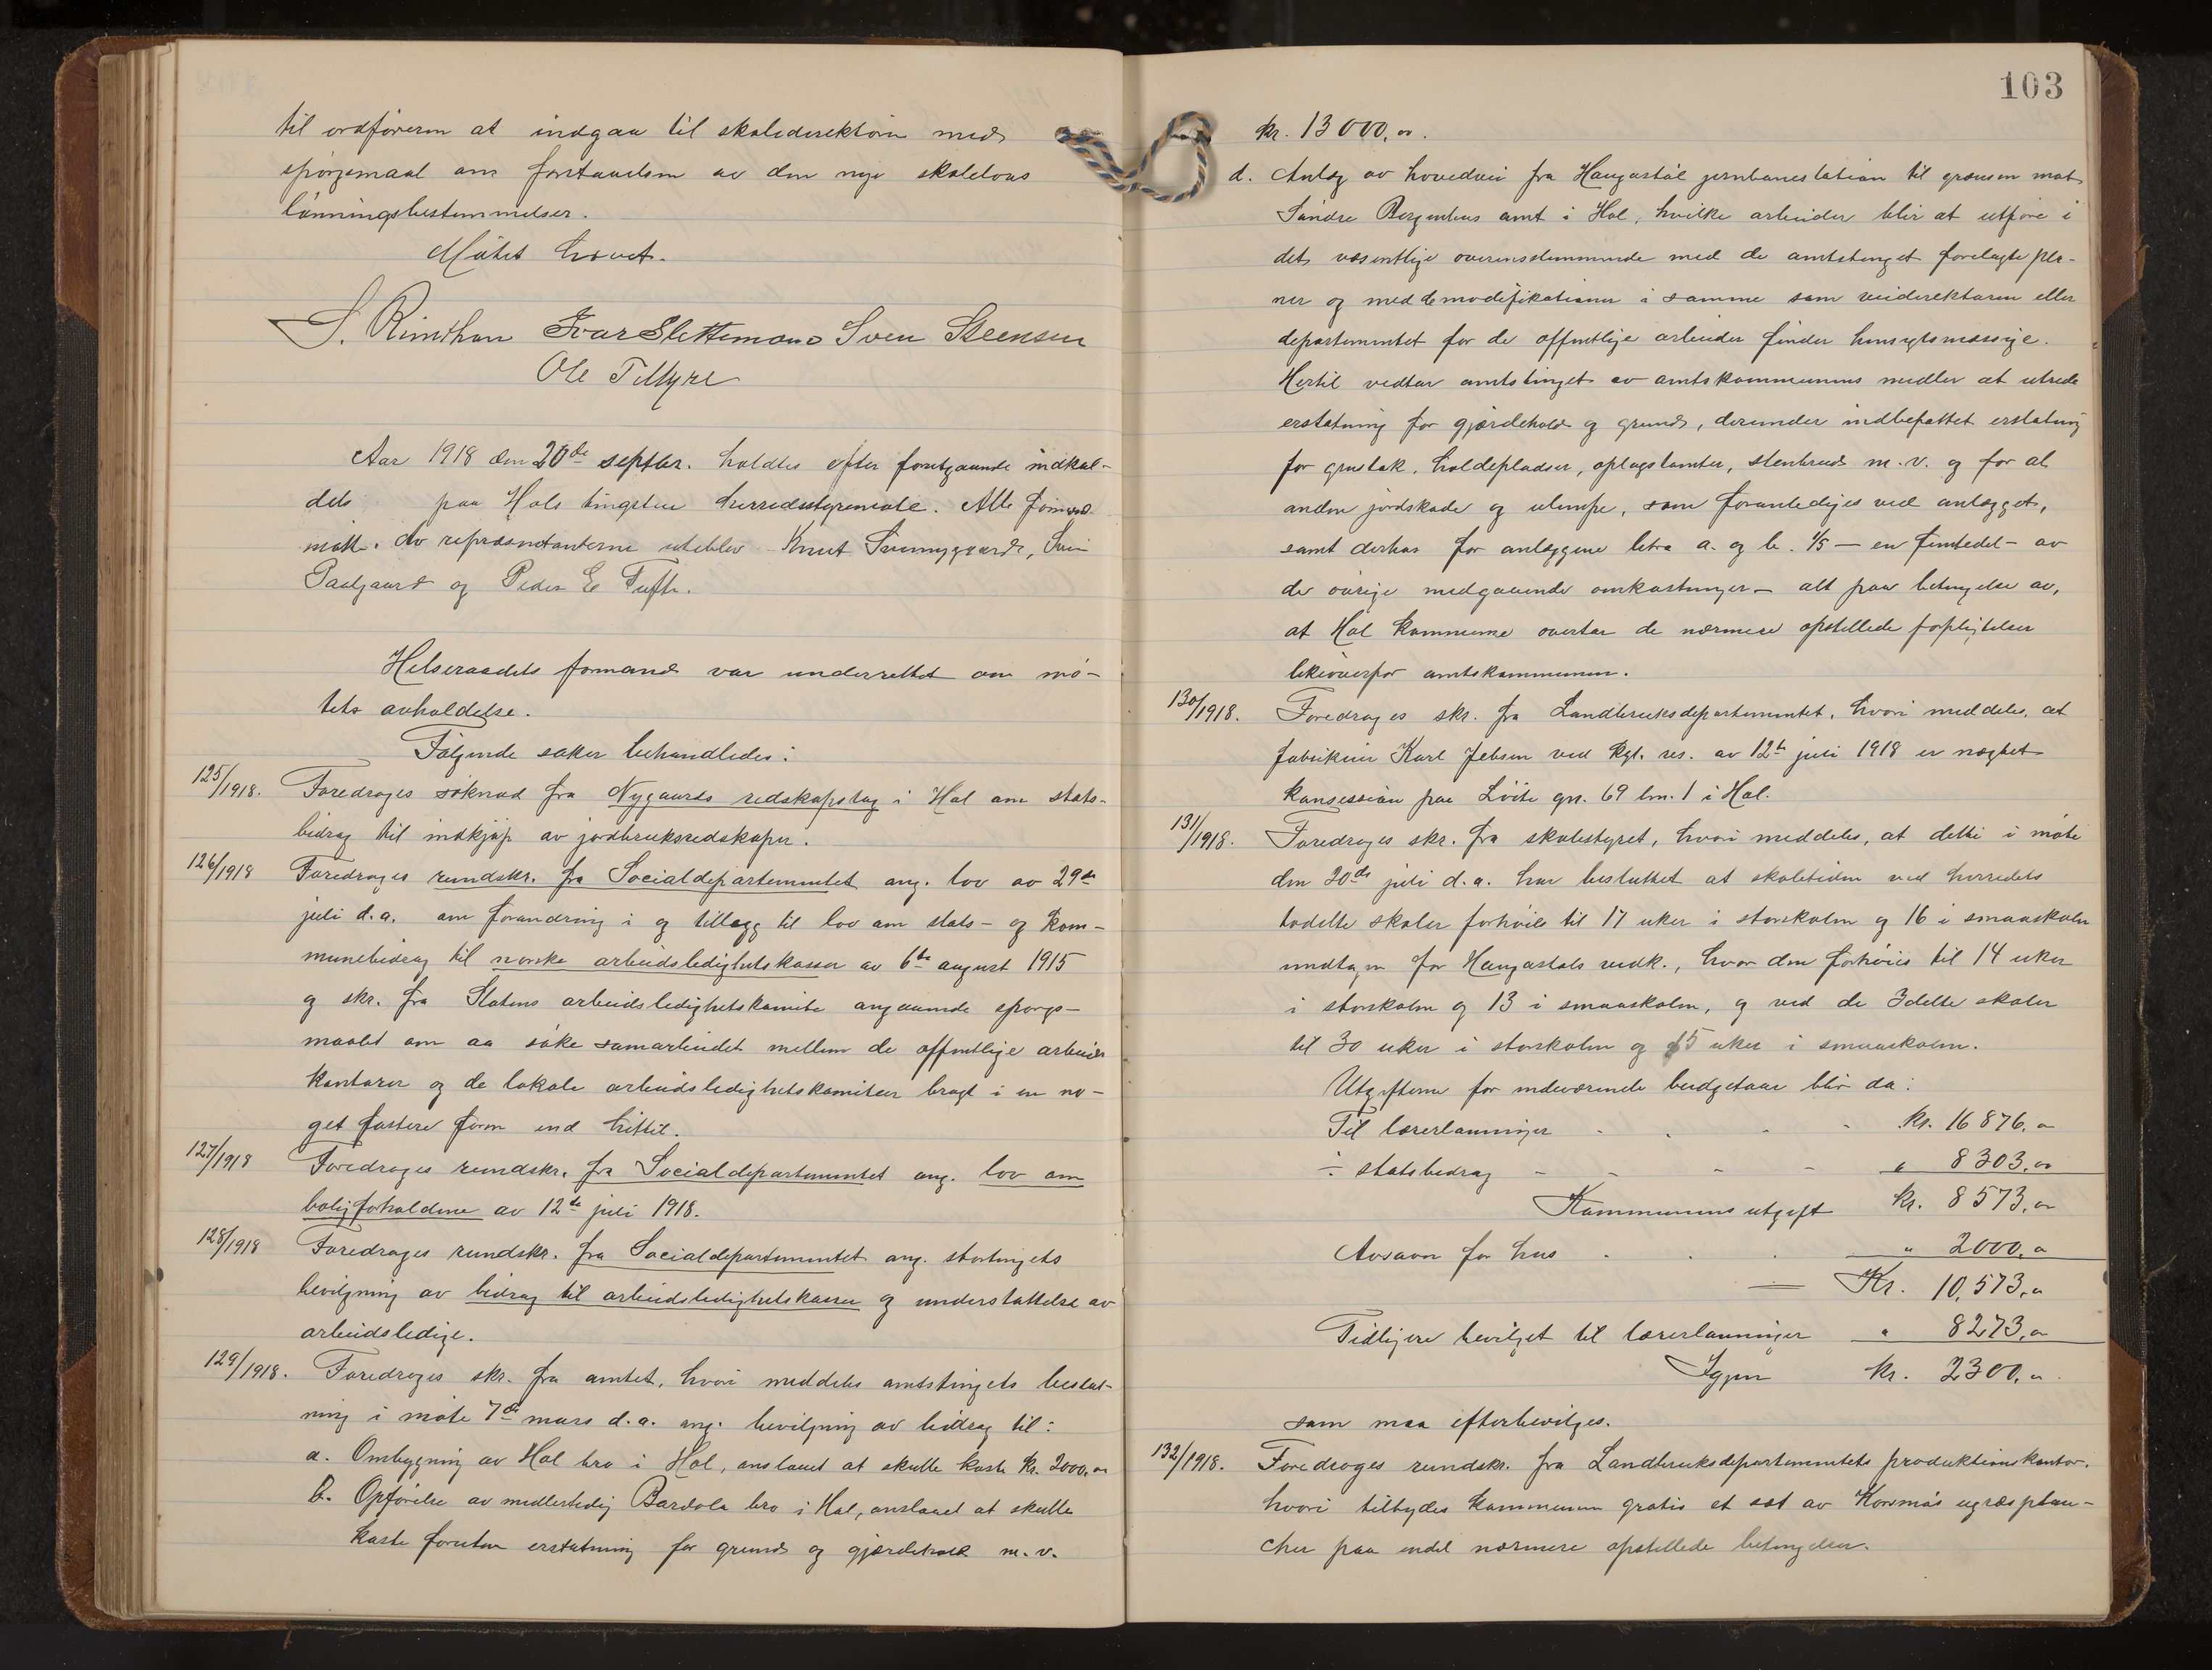 til ordföreren at indgaa til skoledirektören med
spörgsmaal om forstaaelsen av den nye skolelovs
lönningsbestemmelser.
Mötet hævet.
S. Rimthun Ivar Slettemoen Sven Steensen
Ole T Myre
Aar 1918 den 20de septbr. holdtes efter foregaaende indkal-
dels paa Hols tingstue herredsstyremöte. Alle formænd
mötte. Av repræsentanterne uteblev Knut Sunnygaard, Svein
Paalgaard og Peder E Tufte.
Helseraadets formand var underrettet om mö-
tets avholdelse.
Fölgende saker behandledes:
125/1918. Foredroges söknad fra Nygaards redskapslag i Hol om stats-
bidrag til indkjöp av jordbruksredskaper.
126/1918 Foredroges rundskr. fra Socialdepartementet ang. lov av 29de
juli d.a. om forandring i og tillægg til lov om stats- og kom-
munebidrag til norske arbeidsledighetskasser av 6te august 1915
og skr. fra Statens arbeidsledighetskomite angaaende spörgs-
maalet om aa söke samarbeidet mellem de offentlige arbeids
kontorer og de lokale arbeidsledighetskomiteer bragt i en no-
get fastere form end hittil.
127/1918 Foredroges rundskr. fra Socialdepartementet ang. lov om
boligforholdene av 12te juli 1918.
128/1918 Foredroges rundskr. fra Socialdepartementet ang. stortingets
bevilgning av bidrag til arbeidsledighetskasser og understöttelse av
arbeidsledige.
129/1918. Foredroges skr. fra amtet, hvori meddeles amtstingets beslut-
ning i möte 7de mars d.a. ang. bevilgning av bidrag til:
a. Ombygning av Hol bro i Hol, anslaaet at skulle koste kr. 2000,00
b. Opförelse av midlertidig Bardola bro i Hol, anslaaet at skulle
koste foruten erstatning for grund og gjærdehold m.v.
103
kr. 13000,00.
d. Anlæg av hovedvei fra Haugastöl jernbanestation til grænsen mot
Söndre Bergenhus amt i Hol, hvilke arbeider blir at utföre i
det væsentlige overensstemmende med de amtstinget forelagte pla-
ner og med de modifikationer i samme som veidirektören eller
departementet for de offentlige arbeider finder hensigtsmæssige.
Hertil vedtar amtstinget av amtskommunens midler at utrede
erstatning for gjærdehold og grund, derunder indbefattet erstatning
for grustak, holdepladser, oplagstomter, stenbrud m.v. og for al
anden jordskade og ulempe, som foranlediges ved anlægget,
samt derhos for anlæggene litra a. og b. 1/5 – en femtedel – av
de övrige medgaaende omkostninger – alt paa betingelse av,
at Hol kommune overtar de nærmere opstillede forpligtelser
likeoverfor amtskommunen.
130/1918. Foredroges skr. fra Landbruksdepartementet, hvori meddeles, at
fabrikeier Karl Jebsen ved kgl. res. av 12te juli 1918 er nægtet
konsession paa Löite gn. 69 bn. 1 i Hol.
131/1918. Foredroges skr. fra skolestyret, hvori meddeles, at dette i möte
den 20de juli d.a. har besluttet at skoletiden ved herredets
todelte skoler forhöies til 17 uker i storskolen og 16 i smaaskolen
undtagen for Haugastöls vedk., hvor den forhöies til 14 uker
i storskolen og 13 i smaaskolen, og ved de 3delte skoler
til 30 uker i storskolen og 15 uker i smaaskolen.
Utgifterne for indeværende budgetaar blir da:
Til lærerlönninger kr. 16876,00
÷ statsbidrag " 8303,00
Kommunens utgift kr. 8573,00
Avsavn for hus " 2000,00
Kr. 10,573,00
Tidligere bevilget til lærerlönninger " 8273,00
Igjen kr. 2300,00
som maa efterbevilges.
132/1918. Foredroges rundskr. fra Landbruksdepartementets produktionskontor,
hvori tilbydes kommunen gratis et sæt av Korsmös ugræsplan-
cher paa endel nærmere opstillede betingelser.